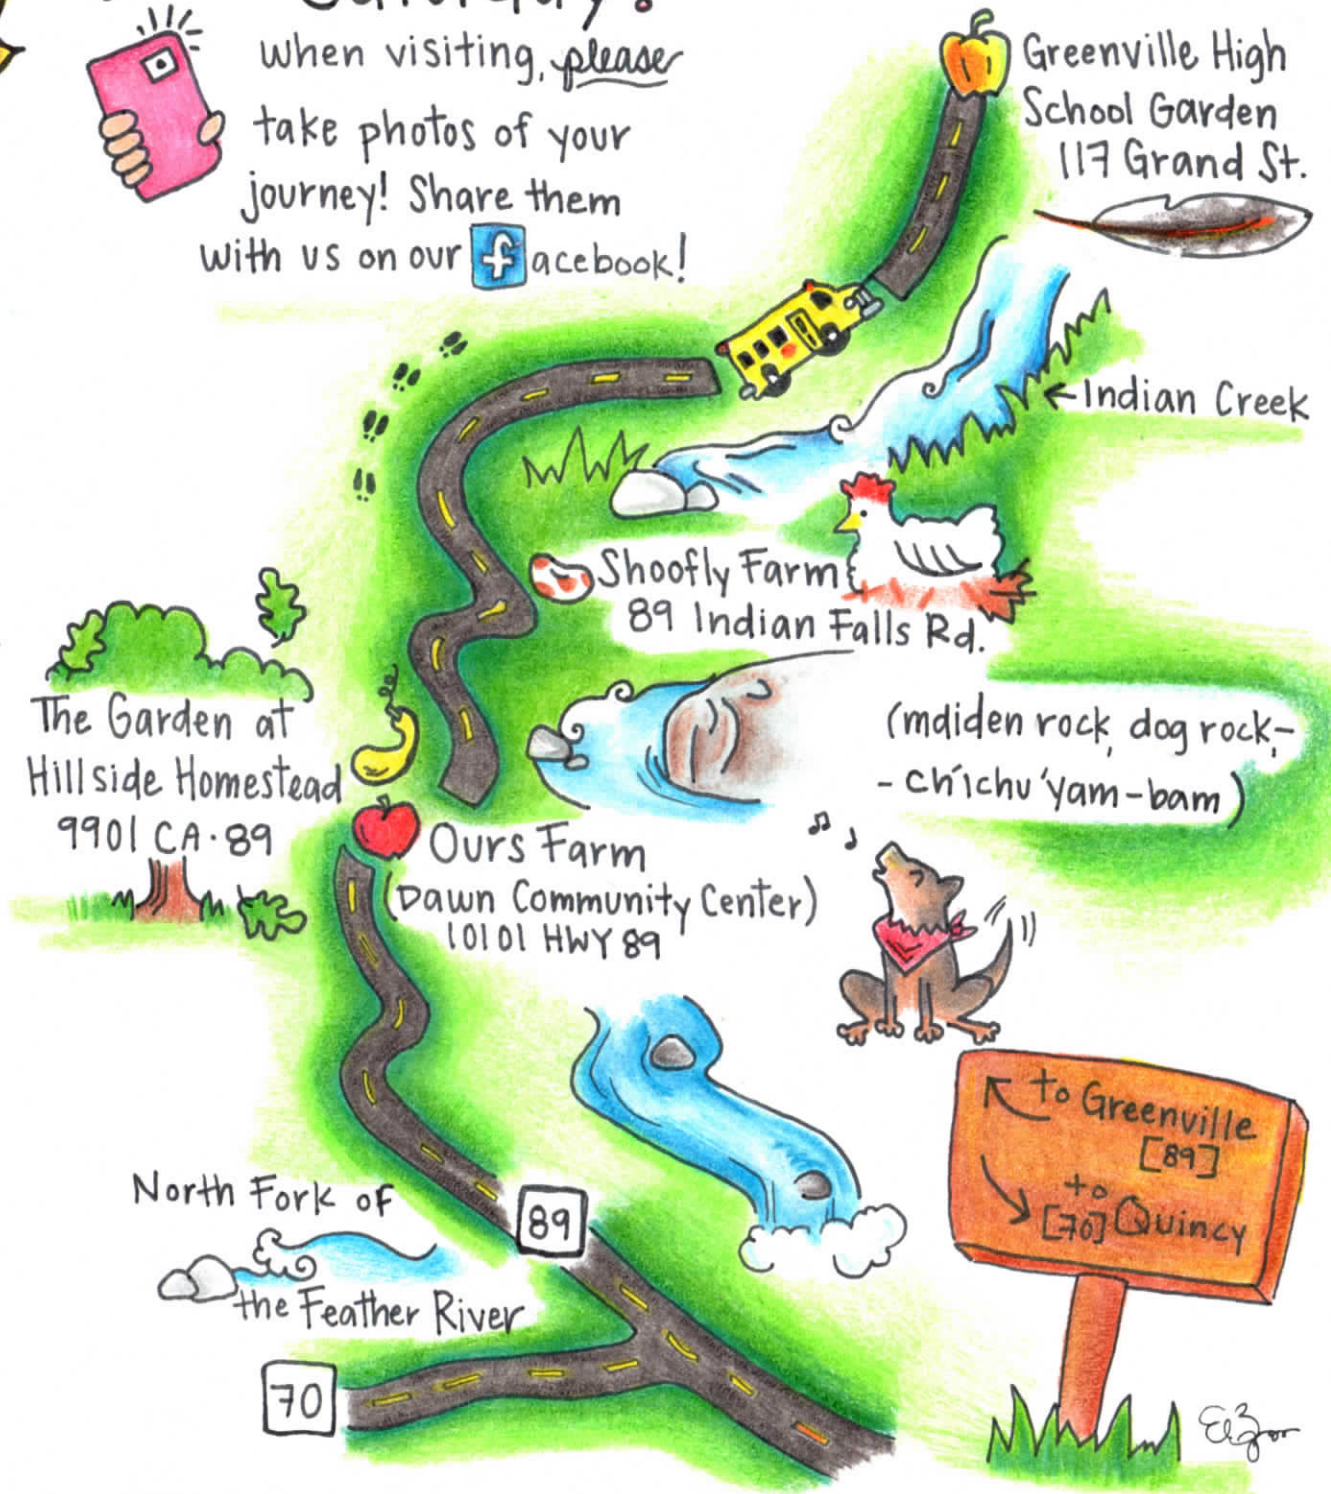 when visiting, please
take photos of your
journey! Share them
with us on our facebook!
Greenville High
School Garden
117 Grand St.
←Indian Creek
Shoofly Farm
89 Indian Falls Rd.
(mdiden rock, dog rock,-
- ch'ichu'yam-bam)
The Garden at
Hillside Homestead
9901 CA·89
Ours Farm
(Dawn Community Center)
10101 HWY 89
to Greenville
[89]
to
[70] Quincy
North Fork of
the Feather River
89
70